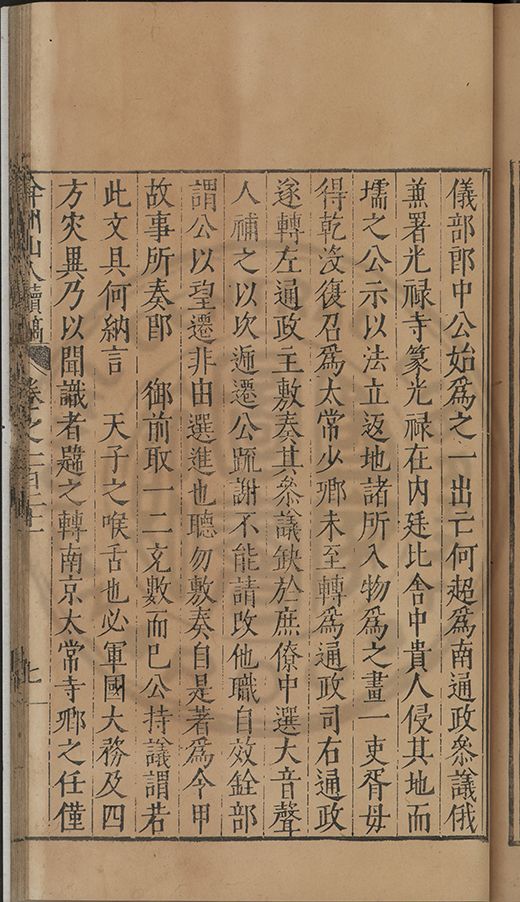 儀部郎中公始爲之一出亡何超爲南通政叅議俄
兼署光禄寺篆光禄在内廷比舍中貴人侵其地而
壖之公示以法立返地諸所入物爲之畫一吏胥毋
得乾没復召爲太常少卿未至轉爲通政司右通政
遂轉左通政主敷奏其叅議缺於庶僚中選大音聲
人補之以次逓遷公䟽謝不能請改他職自效銓部
謂公以望遷非由選進也聽勿敷奏自是著爲令甲
故事所奏即　御前取一二充數而已公持議謂若
此文具何納言　天子之喉舌也必軍國大務及四
方灾異乃以聞識者韙之轉南京太常寺卿之任僅
弇州山人續稿　卷之一百二十一　七